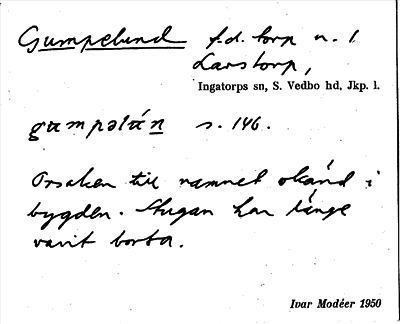 Gumpelund f.d. torp u. l.
Larstorp,
Ingatorps sn, S. Vedbo hd, Jkp. l.
gɑmpəlɑ́n s. 146.
Orsaken till namnet okänd i
bygden. Stugan har länge
varit borta.
Ivar Modéer 1950